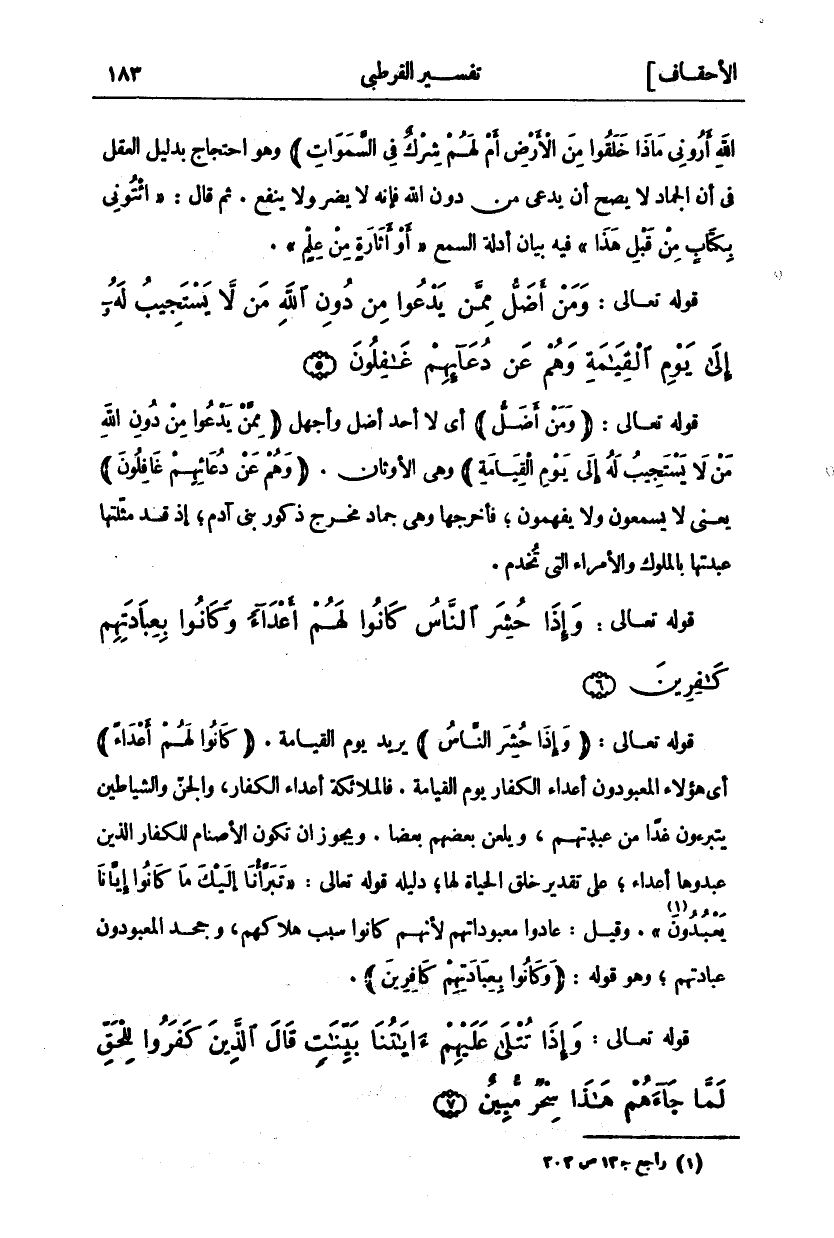 الأحقاف] تفسير القرطبى ١٨٣
اللهِ أَرُونِى مَاذَا خَلَقُوا مِنَ الْأَرْضِ أَمْ لَهُمْ شِرْكٌ فِى السَّمَوَاتِ ﴾ وهو احتجاج بدليل العقل
فى أن الجماد لا يصح أن يدعى من دون الله فإنه لا يضر ولا ينفع . ثم قال : « ائْتُونِى
بِكِتَابٍ مِنْ قَبْلِ هَذَا » فيه بيان أدلة السمع « أَوْ أَثَارَةٍ مِنْ عِلْمٍ » .
قوله تعالى : وَمَنْ أَضَلُّ مِمَّن يَدْعُوا مِن دُونِ ٱللَّهِ مَن لَّا يَسْتَجِيبُ لَهُۥٓ
إِلَىٰ يَوْمِ ٱلْقِيَـٰمَةِ وَهُمْ عَن دُعَآئِهِمْ غَـٰفِلُونَ ۝٥
قوله تعالى : ﴿ وَمَنْ أَضَلُّ ﴾ أى لا أحد أضل وأجهل ﴿ مِمَّنْ يَدْعُوا مِنْ دُونِ اللهِ
مَنْ لَا يَسْتَجِيبُ لَهُ إِلَى يَوْمِ الْقِيَامَةِ ﴾ وهى الأوثان . ﴿ وَهُمْ عَنْ دُعَائِهِمْ غَافِلُونَ ﴾
يعنى لا يسمعون ولا يفهمون ؛ فأخرجها وهى جماد مخرج ذكور بنى آدم ؛ إذ قد مثّلتها
عبدتها بالملوك والأمراء التى تُخدم .
قوله تعالى : وَإِذَا حُشِرَ ٱلنَّاسُ كَانُوا لَهُمْ أَعْدَآءً وَكَانُوا بِعِبَادَتِهِمْ
كَـٰفِرِينَ ۝٦
قوله تعالى : ﴿ وَإِذَا حُشِرَ النَّاسُ ﴾ يريد يوم القيامة . ﴿ كَانُوا لَهُمْ أَعْدَاءً ﴾
أى هؤلاء المعبودون أعداء الكفار يوم القيامة . فالملائكة أعداء الكفار، والجنّ والشياطين
يتبرءون غدًا من عبدتهم ، ويلعن بعضهم بعضا . ويجوز ان تكون الأصنام للكفار الذين
عبدوها أعداء ؛ على تقدير خلق الحياة لها ؛ دليله قوله تعالى : « تَبَرَّأْنَا إِلَيْكَ مَا كَانُوا إِيَّانَا
يَعْبُدُونَ(١) » . وقيل : عادوا معبوداتهم لأنهم كانوا سبب هلاكهم ، وجحد المعبودون
عبادتهم ؛ وهو قوله : ﴿ وَكَانُوا بِعِبَادَتِهِمْ كَافِرِينَ ﴾ .
قوله تعالى : وَإِذَا تُتْلَىٰ عَلَيْهِمْ ءَايَـٰتُنَا بَيِّنَـٰتٍ قَالَ ٱلَّذِينَ كَفَرُوا لِلْحَقِّ
لَمَّا جَآءَهُمْ هَـٰذَا سِحْرٌ مُّبِينٌ ۝٧
(١) راجع جـ ١٣ ص ٣٠٣